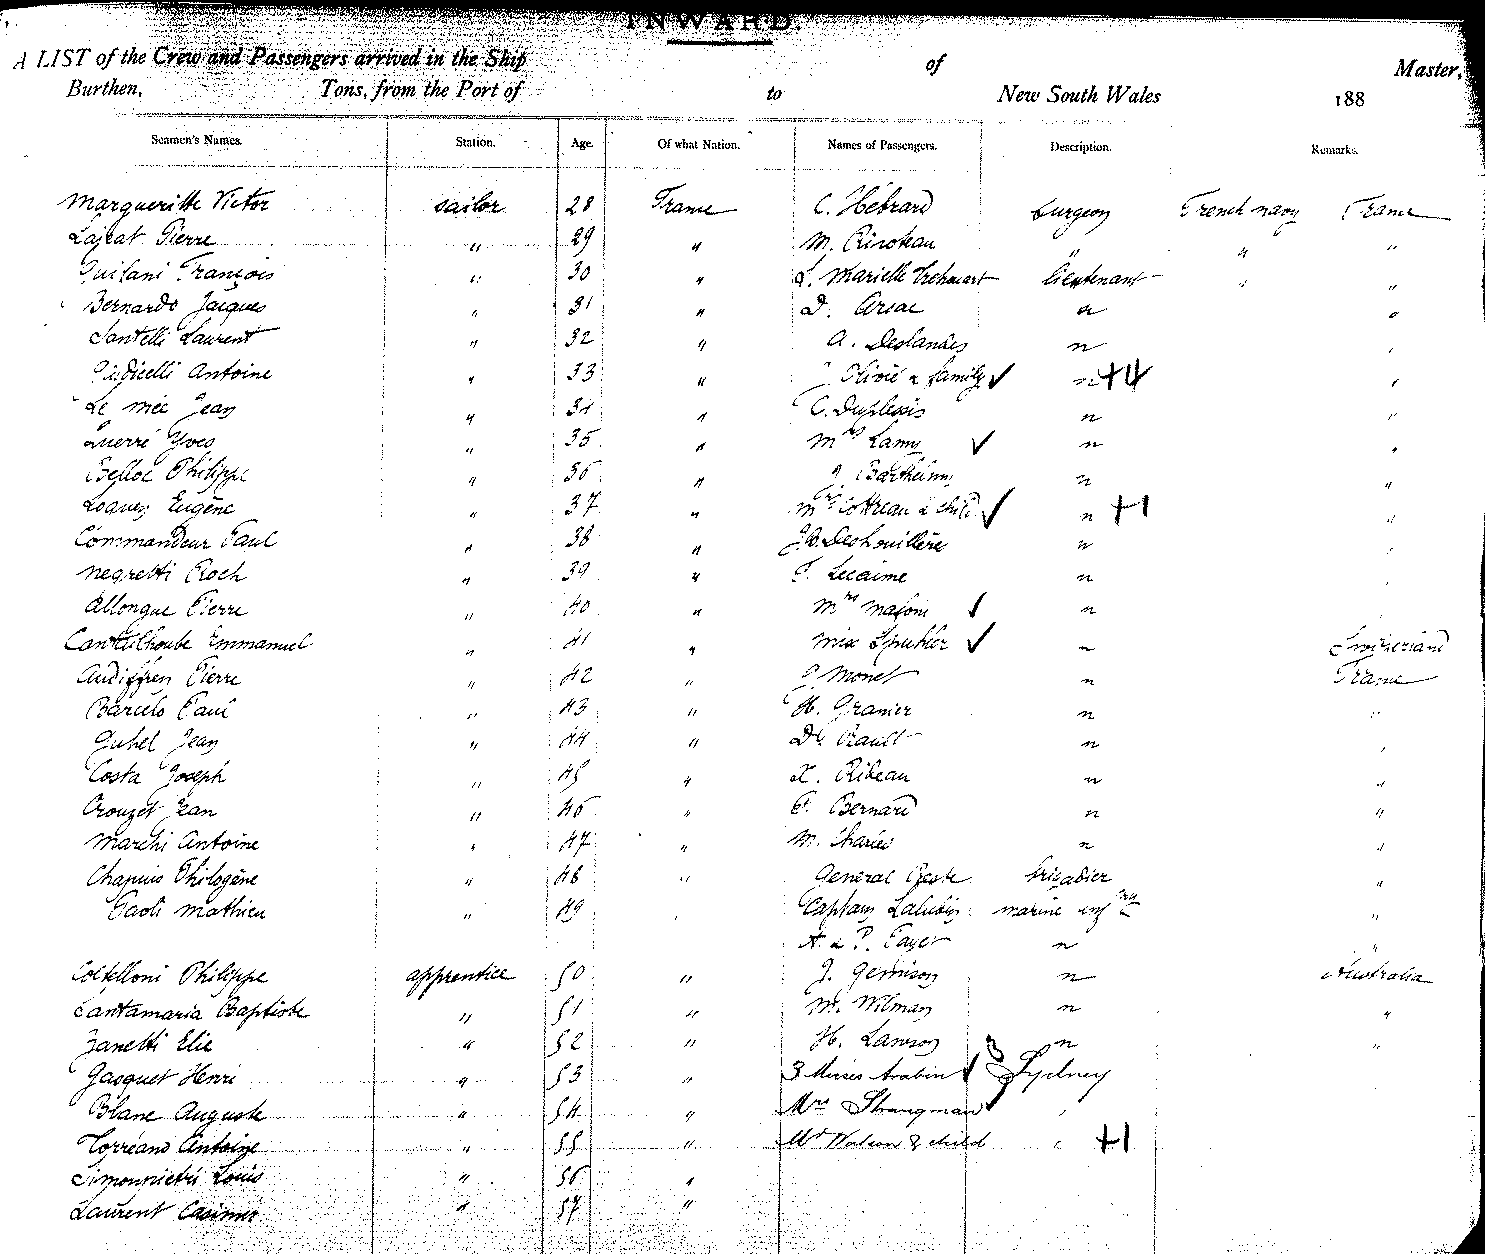 INWARD.
A LIST of the Crew and Passengers arrived in the Ship of Master,
Burthen, Tons, from the Port of to New South Wales 188
Seamen's Names. Station. Age. Of what Nation. Names of Passengers. Description. Remarks.
Margueritte Victor sailor 28 France C. Hébrard Surgeon French navy France
Lajeat Pierre " 29 " M. Rivoteau " " "
Guifani François " 30 " Marielle Trehouart lieutenant " "
Bernardo Jacques " 31 " D. Arsac " "
Santelli Laurent " 32 " A. Deslandes " "
Antoine " 33 " Olivié & family ✓ " +4 "
Le mée Jean " 34 " C. Duplessis " "
Guerré Yves " 35 " Mrs Lamy ✓ " "
Belloc Philippe " 36 " J. Barthélemy " "
Loquez Eugène " 37 " Mrs Cottreau & child ✓ " +1 "
Commandeur Paul " 38 " J.B. Deshouillère " "
Negretti Roch " 39 " Lecaime " "
Allongue Pierre " 40 " Mrs ✓ "
Canteloube Emmanuel " 41 " Miss Spuhler ✓ " Switzerland
Audiffren Pierre " 42 " J. Monet " France
Barcelo Paul " 43 " H. Granier " "
Guhel Jean " 44 " Dr. Rault " "
Costa Joseph " 45 " X. Ribeau " "
Crouzet Jean " 46 " Bernard " "
Marchi Antoine " 47 " M. Charles " "
Chapuis Philogène " 48 " General Reste brigadier "
Paoli Mathieu " 49 " Captain marine infry "
A. & P. Fayet " "
Coltelloni Philippe apprentice 50 " J. Gemison " Australia
Santamaria Baptiste " 51 " W. Wilman " "
Zanetti Elie " 52 " H. Lawson " "
Gasquet Henri " 53 " 3 Misses Arabin ✓ 3 Sydney
Blanc Auguste " 54 " Mrs Strangman ✓ "
Torreano Antoine " 55 " Mr Watson & child " +1
Simonpietri Louis " 56 "
Laurent Casimir " 57 "